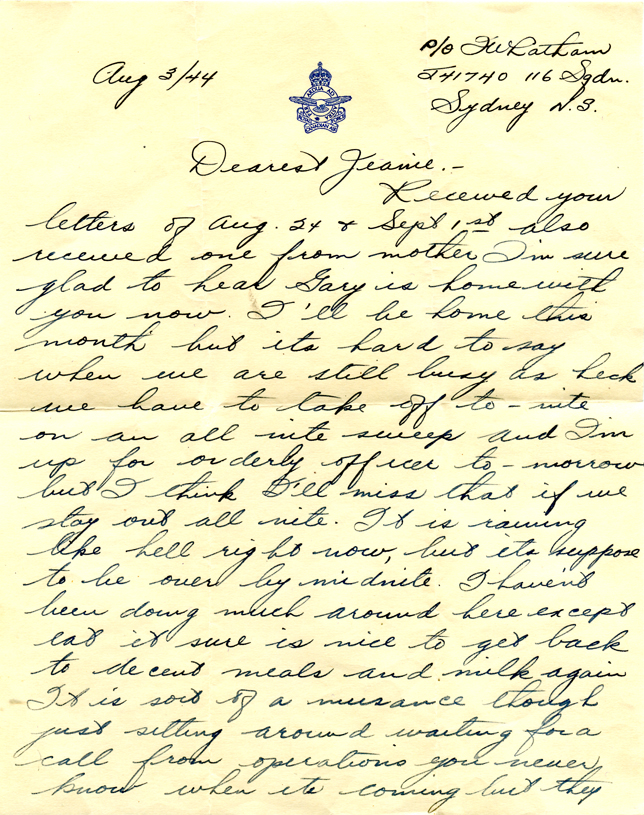 P/O FW Latham
Aug 3/44
J41740 116 Sqdn.
Sydney N.S.
PER ARDUA AD ASTRA
ROYAL CANADIAN AIR FORCE
Dearest Jeanie.-
Received your
letters of Aug. 24 & Sept 1st also
received one from mother I'm sure
glad to hear Gary is home with
you now. I'll be home this
month but its hard to say
when we are still busy as heck
we have to take off to-nite
on an all nite sweep and I'm
up for orderly officer to-morrow
but I think I'll miss that if we
stay out all nite. It is raining
like hell right now, but its suppose
to be over by midnite. I haven't
been doing much around here except
eat it sure is nice to get back
to decent meals and milk again
It is sort of a nusance though
just sitting around waiting for a
call from operations you never
know when its coming but they